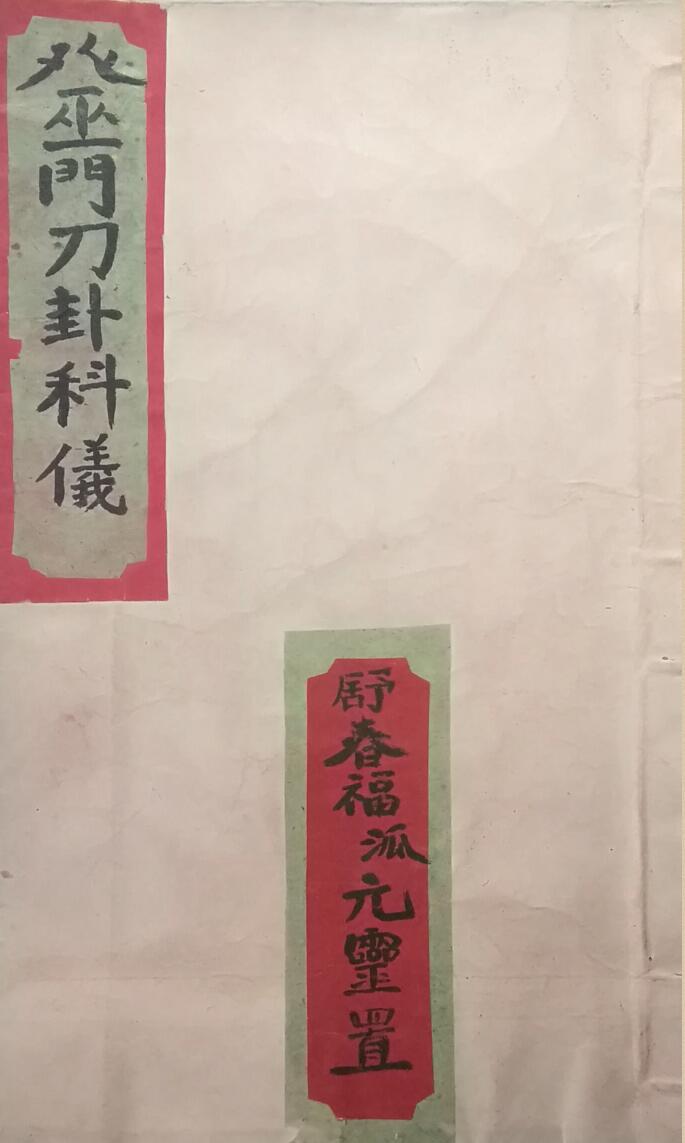 巫門刀卦科儀
舒春福泒元靈置